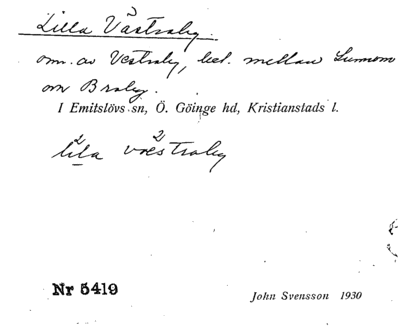 Lilla Västraby.
om. av Vestraby, bel. mellan Sunnom
om Braby.
I Emitslövs sn, Ö. Göinge hd, Kristianstads l.
lila væstraby
Nr 5419
John Svensson 1930